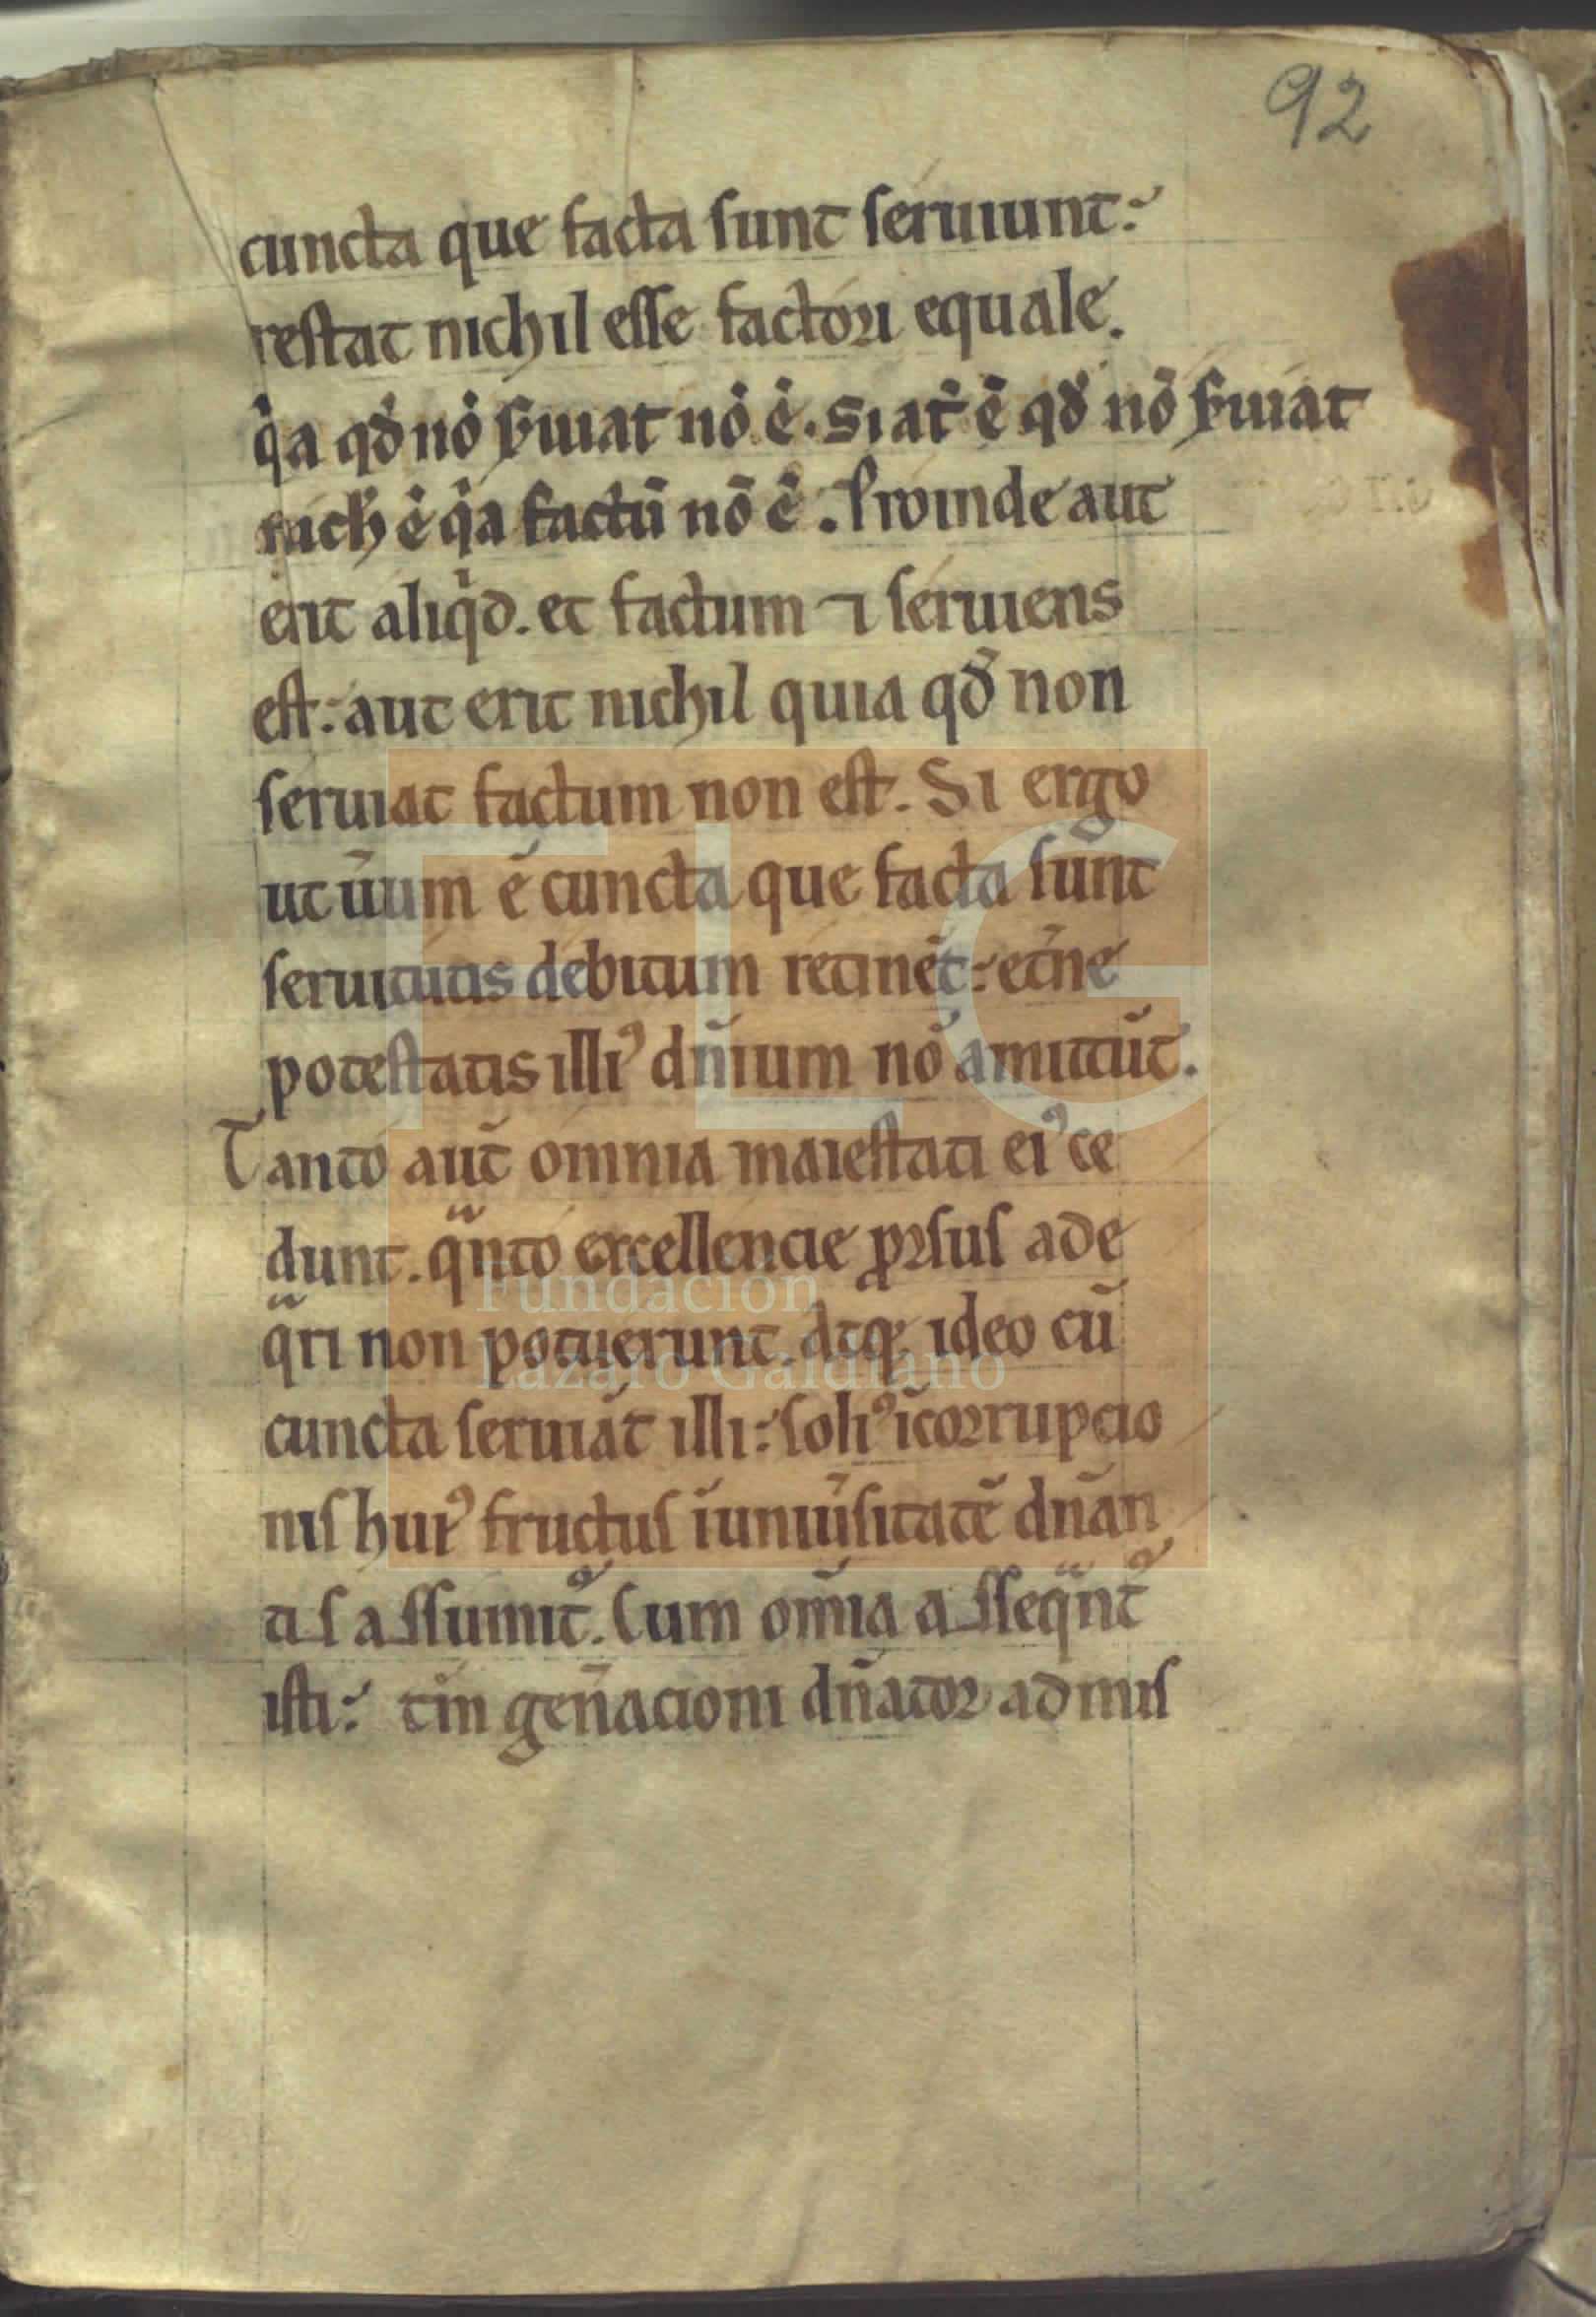 92
cuncta que facta sunt seruiunt:
restat nichil esse factori equale.
q̇a qđ nȯ ẜuiat nȯ ė. Si at̄ ē qđ nō ẜuiat
nich̄ ė q̇a factū nō ė. Proinde aut
erit aliqͥd. et factum ⁊ seruiens
est: aut erit nichil quia qđ non
seruiat factum non est. Si ergo
ut ūum ē cuncta que facta sunt
seruitutis debitum retinēt: et̄ne
potestatis illiꝰ dn̄ium nō amittūt.
Tanto aūt omnia maiestati eiꝰ ce
dunt. qᷓnto excellencie ꝓrsus ade
qᷓri non potuerunt. Atqꝫ ideo cū
cuncta seruiāt illi: soliꝰ īcorrupcio
nis huiꝰ fructus īuniūsitatē dn̄an
tis assumit᷑. Cum omīa asseqᷓnt᷑
isti: tm̄ gen̄acioni dn̄ator admis
FLG
Fundación
Lázaro Galdiano